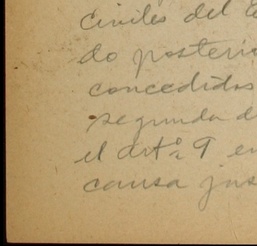 civiles del E
do posterio
concedidos
segunda d
el artº 9 en
causa jus